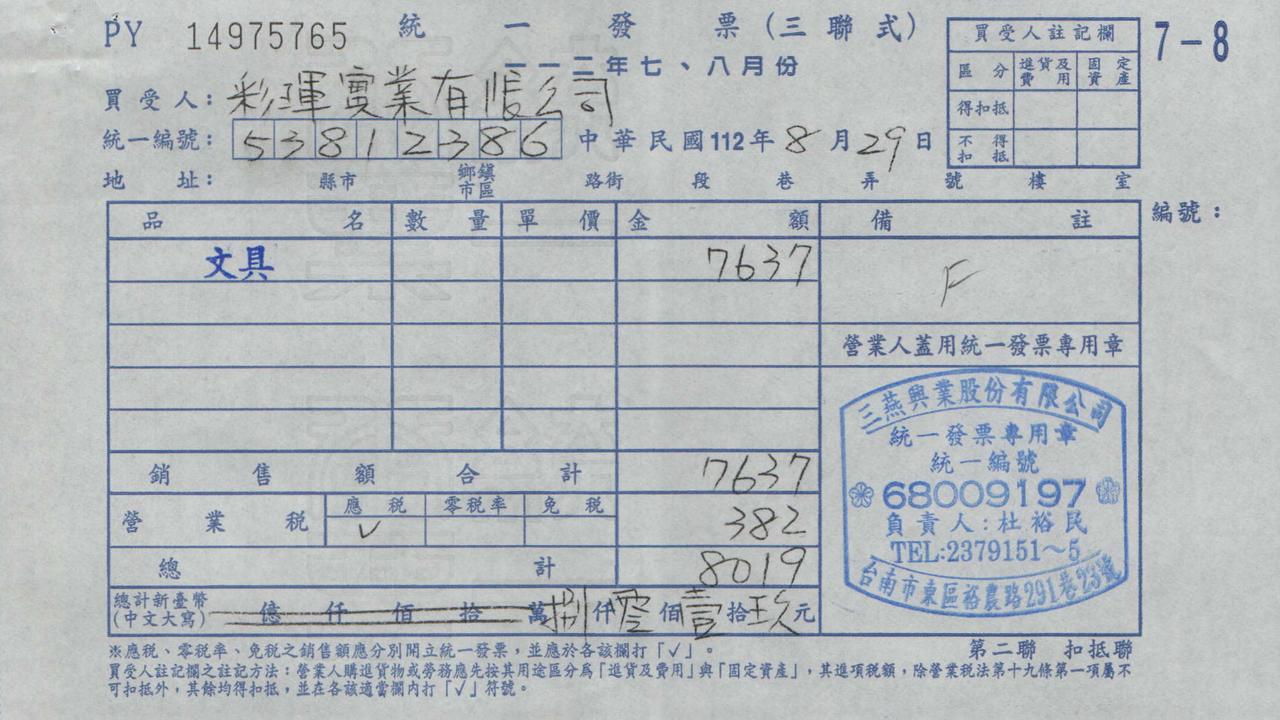 PY 14975765 統一發票(三聯式) 7-8
一一二年七、八月份
買受人: 彩琿實業有限公司
統一編號: 53812386 中華民國112年8月29日
買受人註記欄
區分 進貨及費用 固定資產
得扣抵
不得扣抵
地址: 縣市 鄉鎮市區 路街 段 巷 弄 號 樓 室
品名 數量 單價 金額 備註 編號:
文具 7637 F
營業人蓋用統一發票專用章
銷售額合計 7637
營業稅 應稅 零稅率 免稅 382
√
總計 8019
總計新臺幣(中文大寫) 億仟佰拾萬捌仟零佰壹拾玖元
三燕興業股份有限公司
統一發票專用章
統一編號
68009197
負責人:杜裕民
TEL:2379151~5
台南市東區裕農路291巷23號
第二聯 扣抵聯
※應稅、零稅率、免稅之銷售額應分別開立統一發票,並應於各該欄打「√」。
買受人註記欄之註記方法:營業人購進貨物或勞務應先按其用途區分為「進貨及費用」與「固定資產」,其進項稅額,除營業稅法第十九條第一項屬不
可扣抵外,其餘均得扣抵,並在各該適當欄內打「√」符號。